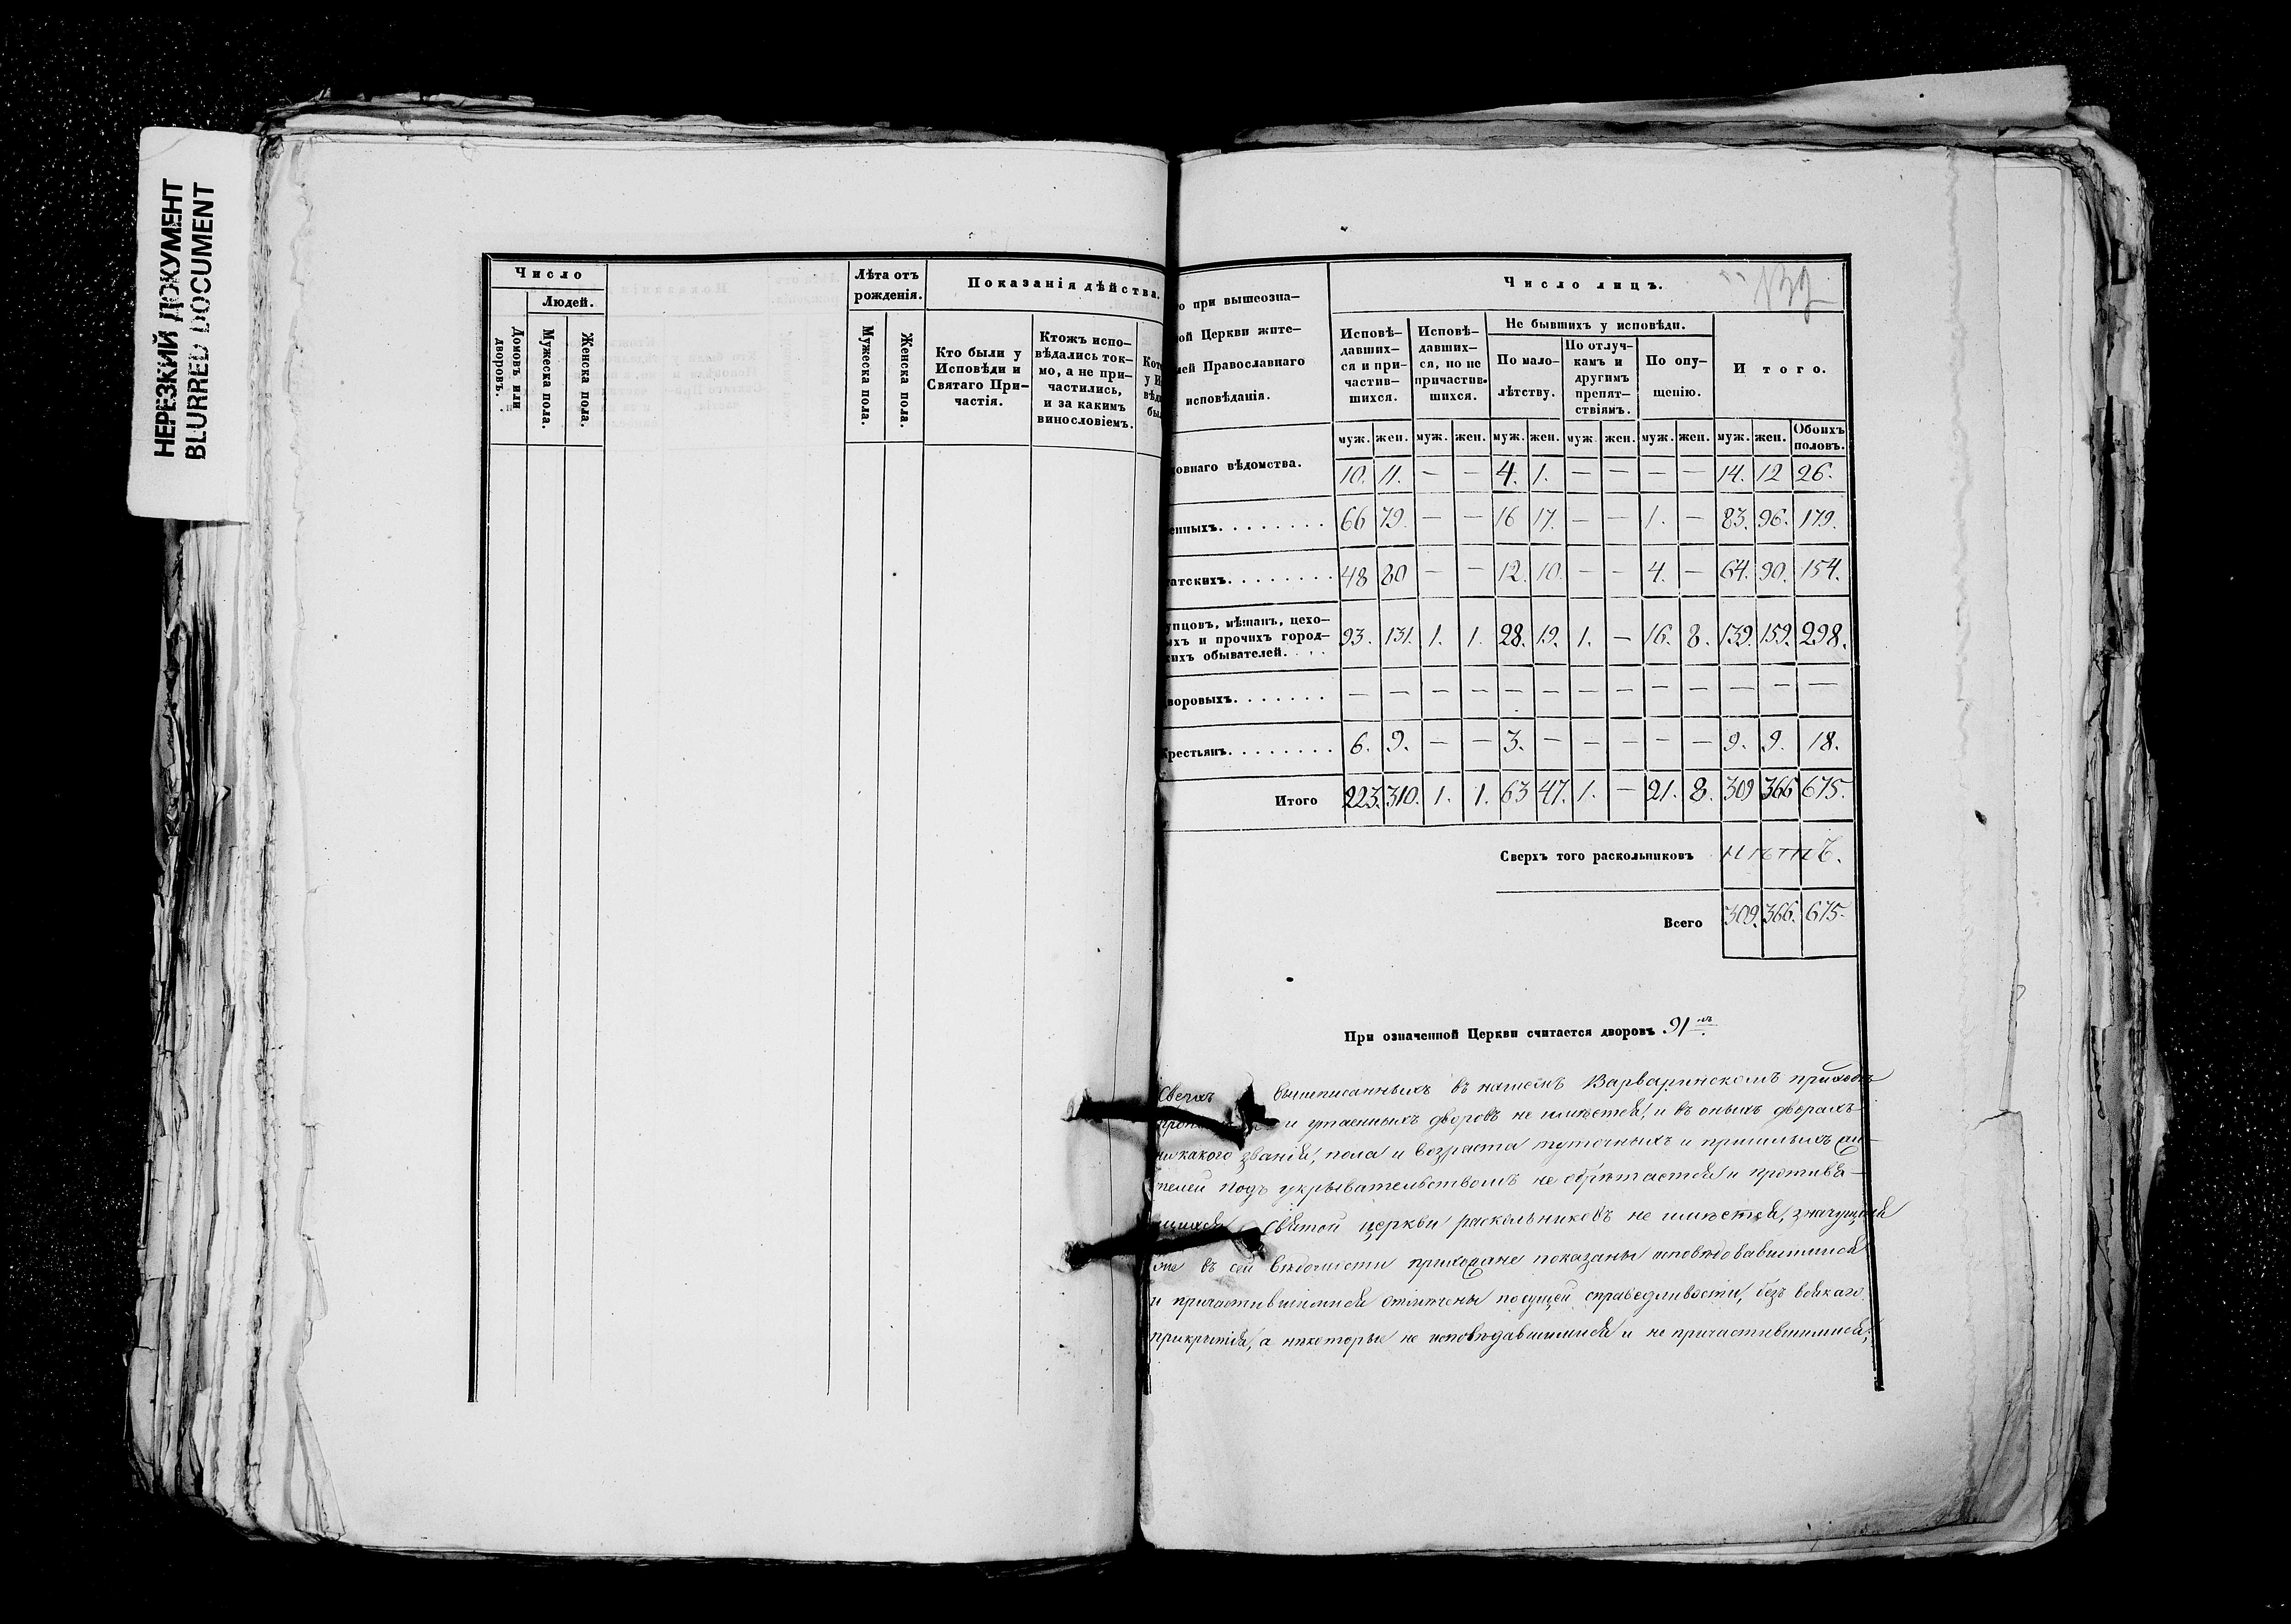 НЕРЕЗКИЙ ДОКУМЕНТ
BLURRED DOCUMENT
Число
Людей.
Домовъ или дворовъ.
Мужеска пола.
Женска пола.
Лѣта отъ
рожденія.
Мужеска пола.
Женска пола.
Показанія дѣйства.
Кто были у
Исповѣди и
Святаго При-
частія.
Ктожъ испо-
вѣдались ток-
мо, а не при-
частились,
и за какимъ
винословіемъ.
о при вышеозна-
ой Церкви жите-
лей Православнаго
исповѣданія.
Число лицъ.
Исповѣ-
давших-
ся и при-
частив-
шихся.
Исповѣ-
давших-
ся, но не
причастив-
шихся.
Не бывшихъ у исповѣди.
По мало-
лѣтству.
По отлуч-
камъ и
другимъ
препят-
ствіямъ.
По опу-
щенію.
Итого.
муж. жен. муж. жен. муж. жен. муж. жен. муж. жен. муж. жен. Обоихъ половъ.
ховнаго вѣдомства. 10. 11. — — 4. 1. — — — — 14. 12 26.
енныхъ. . . . . . . . 66 79. — — 16 17. — — 1. — 83. 96. 179.
атскихъ. . . . . . . . 48 80 — — 12. 10. — — 4. — 64. 90. 154.
упцовъ, мѣщанъ, цехо-
ыхъ и прочихъ город-
кихъ обывателей. . . . 93. 131. 1. 1. 28. 19. 1. — 16. 8. 139. 159. 298.
воровыхъ. . . . . . . — — — — — — — — — — — — —
рестьянъ. . . . . . . . 6. 9. — — 3. — — — — — 9. 9. 18.
Итого 223. 310. 1. 1. 63 47. 1. — 21. 8. 309 366 675.
Сверхъ того раскольниковъ нѣтъ.
Всего 309. 366. 675.
При означенной Церкви считается дворовъ 91
Сверхъ вышписанныхъ въ нашемъ Варваринскомъ приходѣ
и утаенныхъ дворовъ не имѣется, и въ оныхъ дворахъ
никакого званія, пола и возраста туточныхъ и пришлыхъ жи-
телей подъ укрывательствомъ не обрѣтается и противя-
щихся Святой церкви раскольниковъ не имѣется, значущіяся
же въ сей вѣдомости прихожане показаны исповѣдовавшимися
и причастившимися отмѣчены по сущей справедливости, безъ всякаго
прикрытія, а нѣкоторые не исповѣдавшимися и не причастившимися,